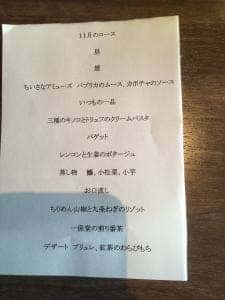 11月のコース
昼
ちいさなアミューズ パプリカのムース、カボチャのソース
いつもの一品
三種のキノコとトリュフのクリームパスタ
バゲット
レンコンと生姜のポタージュ
蒸し物 鰆、小松菜、小芋
お口直し
ちりめん山椒と九条ねぎのリゾット
一保堂の煎り番茶
デザート ブリュレ、紅茶のわらびもち